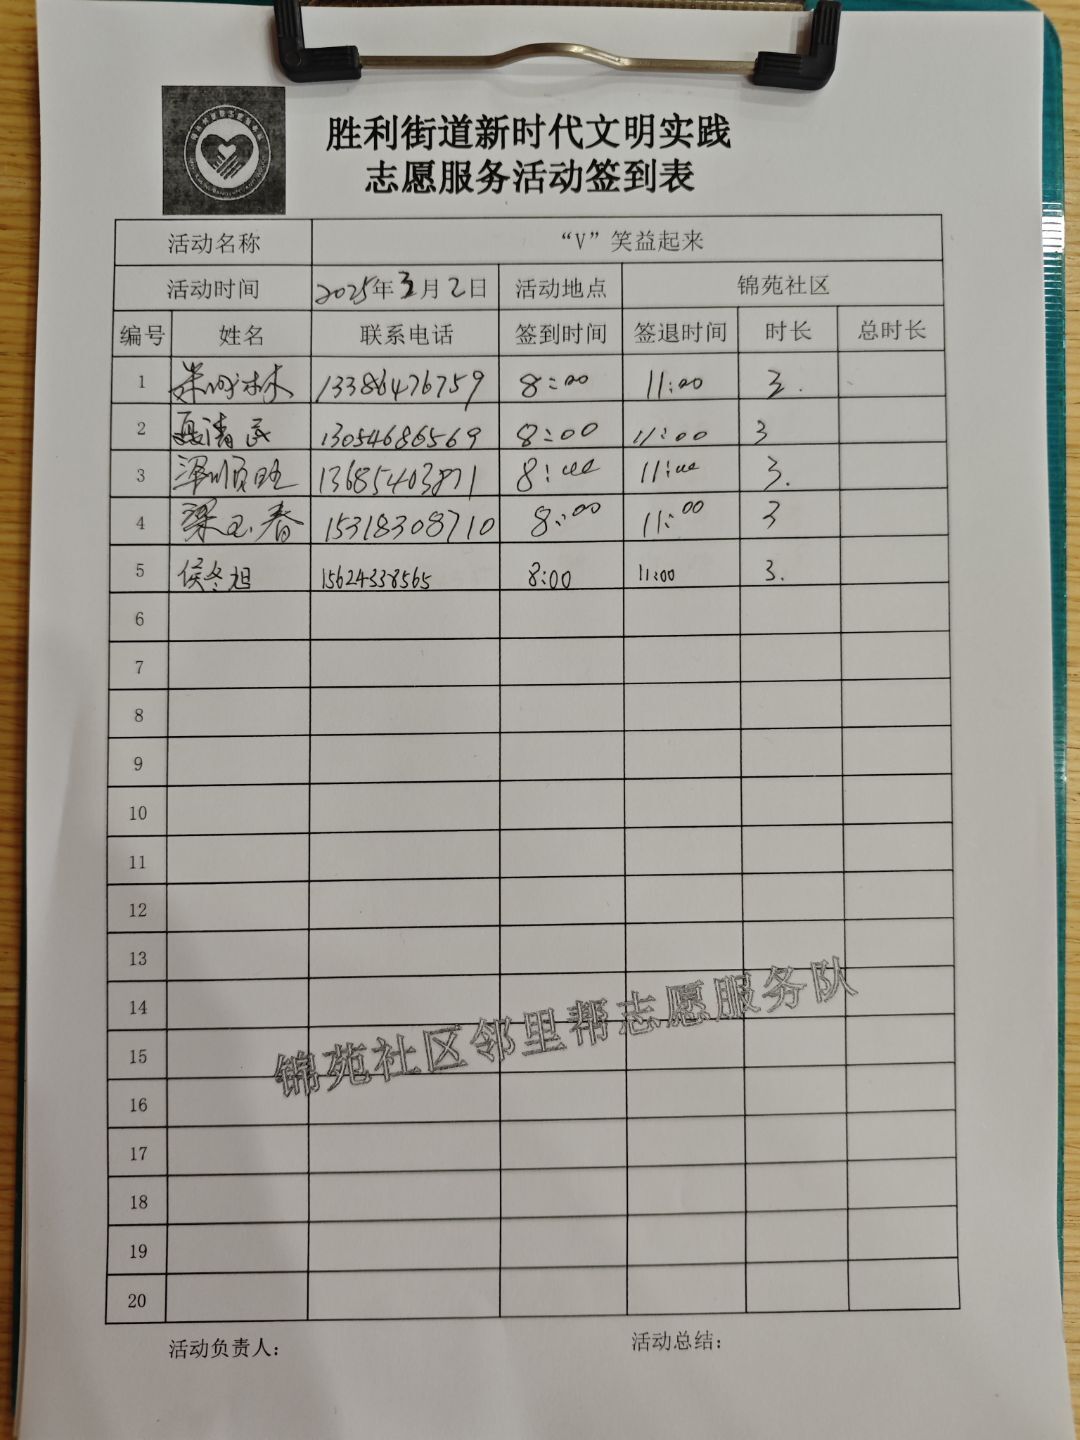 胜利街道新时代文明实践
志愿服务活动签到表
活动名称 “V”笑益起来
活动时间 2025年3月2日 活动地点 锦苑社区
编号 姓名 联系电话 签到时间 签退时间 时长 总时长
1 13386476759 8:00 11:00 3.
2 聂清民 13054686569 8:00 11:00 3
3 13685403871 8:00 11:00 3.
4 梁玉春 15318308710 8:00 11:00 3
5 侯冬旭 15624338565 8:00 11:00 3.
6
7
8
9
10
11
12
13
14
15
16
17
18
19
20
锦苑社区邻里帮志愿服务队
活动负责人： 活动总结：